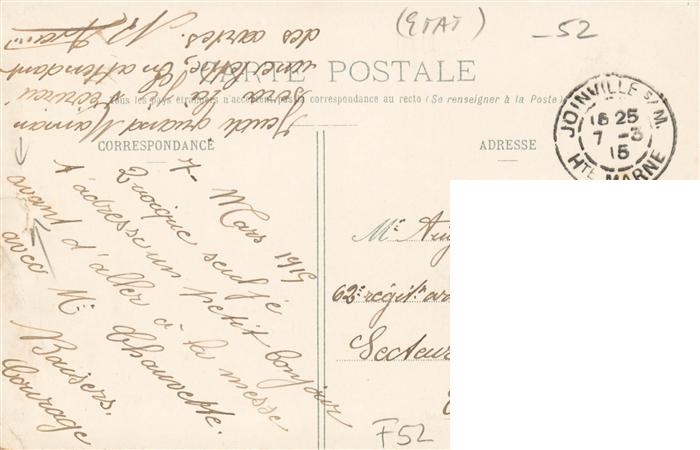 (ETAT)
- 52
CARTE POSTALE
Tous les pays étrangers n'acceptent pas la correspondance au recto (Se renseigner à la Poste)
CORRESPONDANCE
ADRESSE
JOINVILLE S/M.
18 25
7 - 3
15
HTE MARNE
7 - Mars 1915
Quoique seul je
t'adresse un petit bonjour
avant d'aller à la messe
avec Mr Chauvette.
Baisers.
Courage
Jeudi quand Maman
sera là je t'écrirai
une lettre, en attendant
des cartes.
Mr Aug
62e régit. ar
Secteur
F52